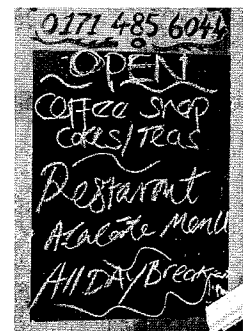 0171 485 6044
OPEN
Coffee Shop
Cakes/Teas
Restaront
Alacarte Menu
All DAY Breakfast